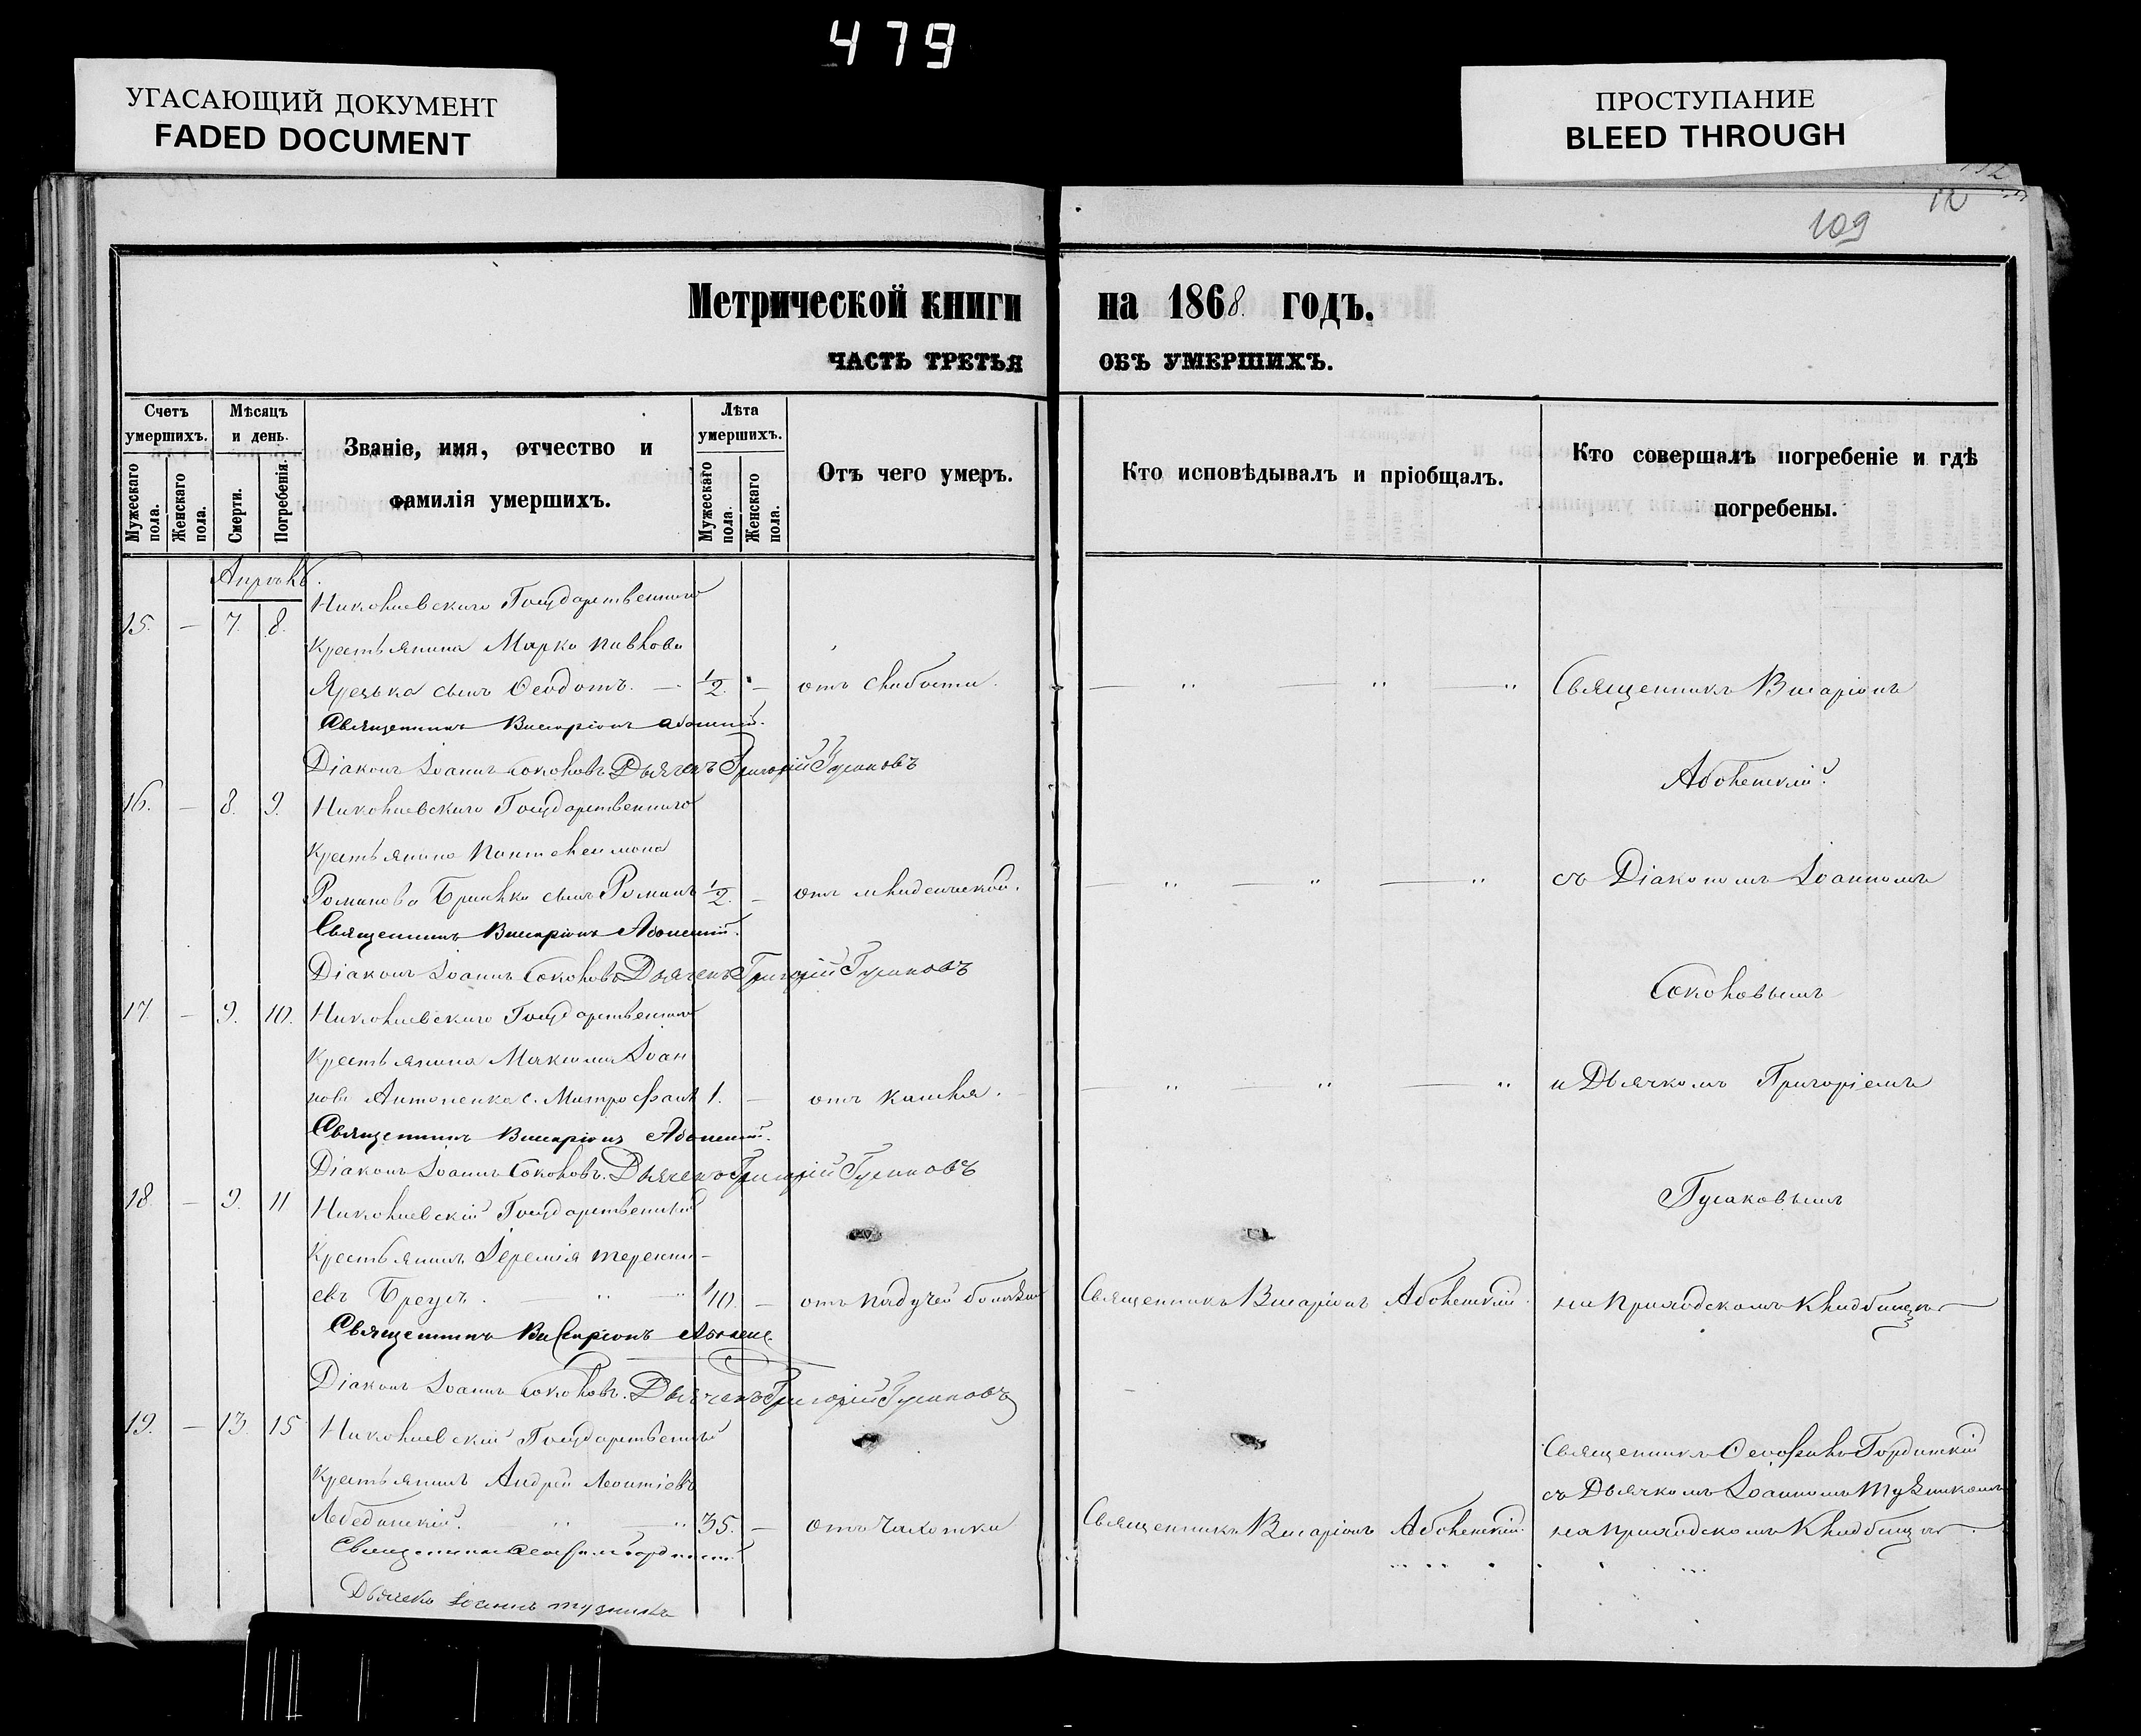 479
УГАСАЮЩИЙ ДОКУМЕНТ
FADED DOCUMENT
ПРОСТУПАНИЕ
BLEED THROUGH
109
Метрической книги на 1868. годъ.
ЧАСТЬ ТРЕТЬЯ ОБЪ УМЕРШИХЪ.
Счетъ умершихъ.
Мужескаго пола.
Женскаго пола.
Мѣсяцъ и день.
Смерти.
Погребенія.
Званіе, имя, отчество и
фамилія умершихъ.
Лѣта умершихъ.
Мужескаго пола.
Женскаго пола.
Отъ чего умеръ.
Кто исповѣдывалъ и пріобщалъ.
Кто совершалъ погребеніе и гдѣ
погребены.
Апрѣль.
15. — 7. 8. Николаевскаго Государственнаго
Крестьянина Марка Павлова
сынъ Ѳеодотъ. — 1/2. — отъ слабости. Священникъ Висаріонъ
Священникъ Висаріонъ
Діаконъ Іоаннъ Соколовъ. Дьячекъ Григорій Гусаковъ
Аболенскій.
16. — 8. 9. Николаевскаго Государственнаго
Крестьянина Пантелеимона
Романова сынъ Романъ 1/2. — отъ младенческой. съ Діакономъ Іоанномъ
Священникъ Висаріонъ
Діаконъ Іоаннъ Соколовъ Дьячекъ Григорій Гусаковъ
Соколовымъ
17. — 9. 10. Николаевскаго Государственнаго
Крестьянина Максима Іоан
нова Антоненка с. Митрофанъ 1. — отъ кашля. и Дьячкомъ Григоріемъ
Священникъ Висаріонъ
Діаконъ Іоаннъ Соколовъ. Дьячекъ Григорій Гусаковъ
Гусаковымъ
18. — 9. 11 Николаевскій Государственный
Крестьянинъ Іеремія Теренті-
евъ Бреусъ. 40. — отъ падучей болѣзни Священникъ Висаріонъ Аболенскій. на приходскомъ кладбищѣ
Священникъ Висаріонъ
Діаконъ Іоаннъ Соколовъ. Дьячекъ Григорій Гусаковъ
19. — 13. 15 Николаевскій Государственный
Крестьянинъ Андрей Леонтіевъ
35. — отъ чахотки Священникъ Висаріонъ Аболенскій. на приходскомъ кладбищѣ.
Священникъ
съ Дьячкомъ Іоанномъ
Дьячекъ Іоаннъ